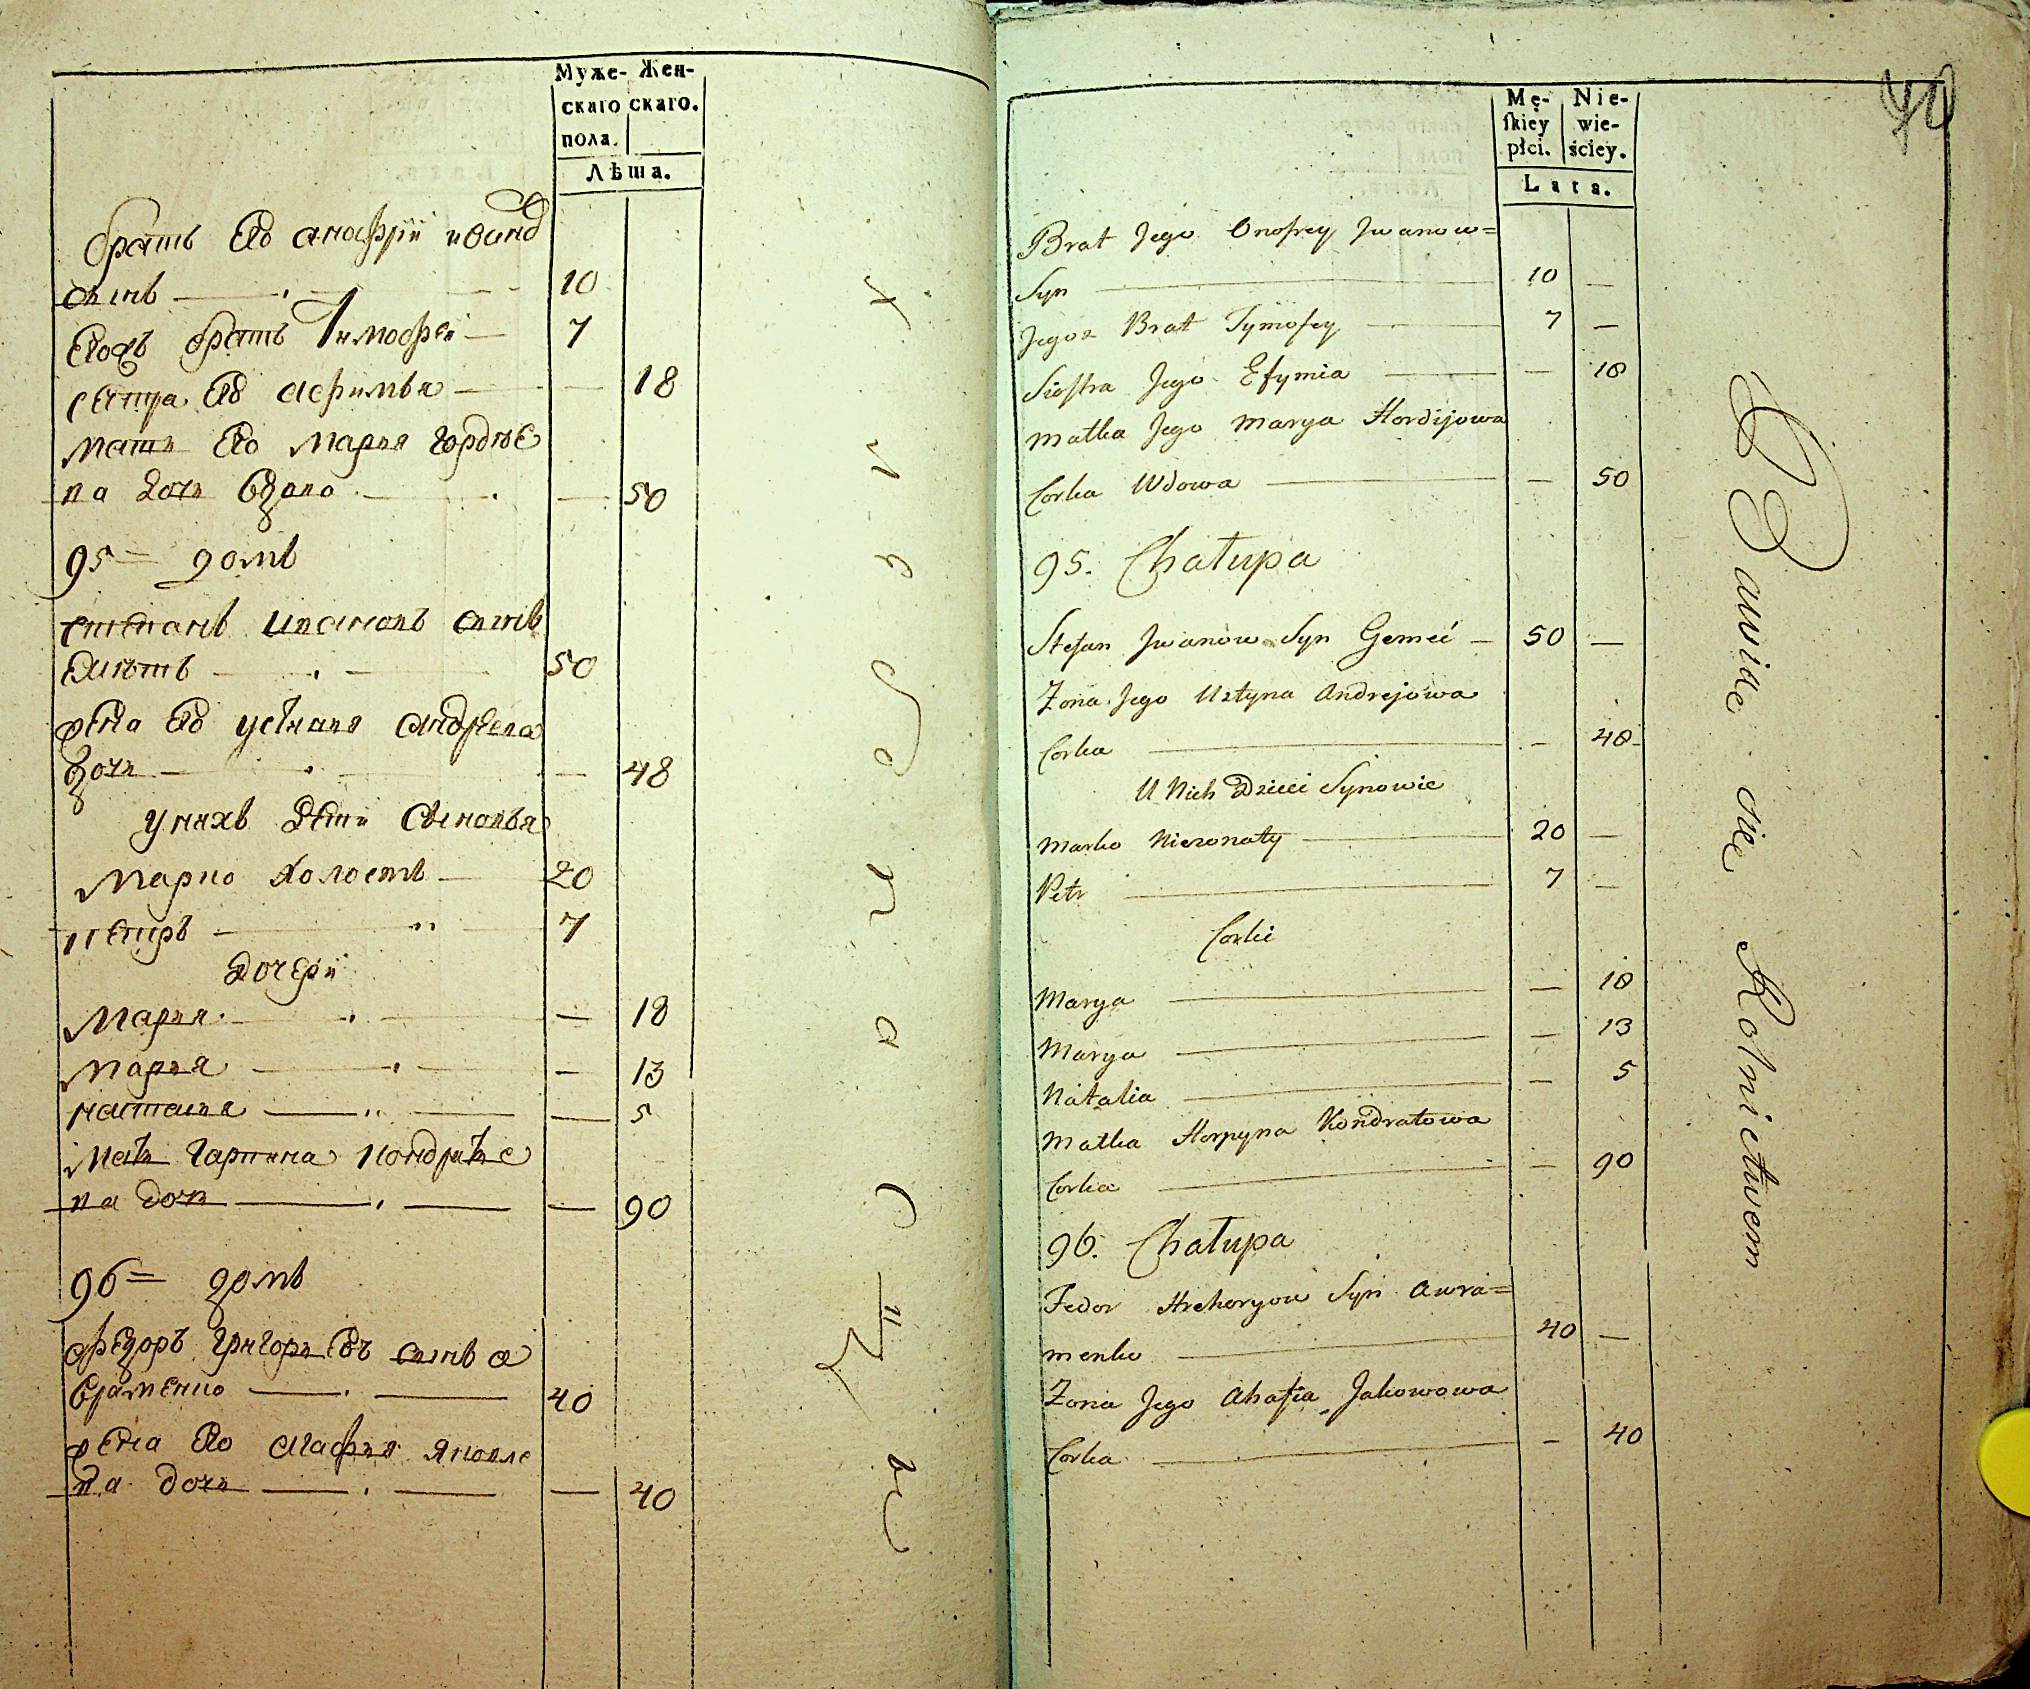 Муже- Жен-
скаго скаго.
пола.
Лѣта.
братъ Его анофрїй ивано
сынъ 10
Егожъ братъ Тимофей 7
сестра Его афимья — 18
мати Его Марья гордѣе
ва дочь вдова — 50
95 = домъ
степанъ ивановъ сынъ
50
жена Его устиния андреева
дочь — 48
у нихъ дети сыновья
Марко холостъ 20
петръ 7
дочерїи
Марья — 18
Марья — 13
наталя — 5
мать гарпина кондратье
ва дочь — 90
96 = домъ
федоръ григорьевъ сынъ а
враменко 40
жена Его агафия яковле
ва дочь — 40
40
Mę- Nie-
skiey wie-
płci. ściey.
Lata.
Brat Jego Onofrey Jwanow=
Syn 10 —
Jegoż Brat Tymofey 7 —
Siostra Jego Efymia — 18
Matka Jego Marya Hordijowa
Corka Wdowa — 50
95. Chałupa
Stefan Jwanow Syn 50 —
Zona Jego Ustyna Andrejowa
Corka — 48
U Nich Dzieci Synowie
Marko Niezonaty 20 —
Petr 7 —
Corki
Marya — 18
Marya — 13
Natalia — 5
Matka Horpyna Kondratowa
Corka — 90
96. Chałupa
Fedor Hrehoryow Syn Awra=
menko 40 —
Zona Jego Ahafia Jakowowa
Corka — 40
Bawiące się Rolnictwem